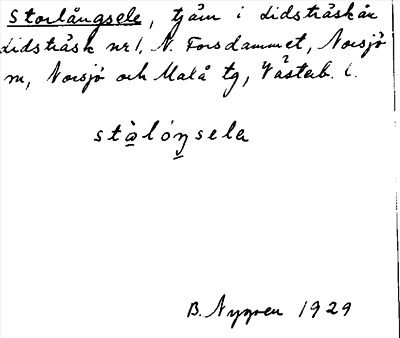 Storlångsele, tjärn i Lidsträskån
Lidsträsk nr 1, N. Forsdammet, Norsjö
m, Norsjö och Malå tg, Västerb. l.
stàlóŋsela
B. Nygren 1929